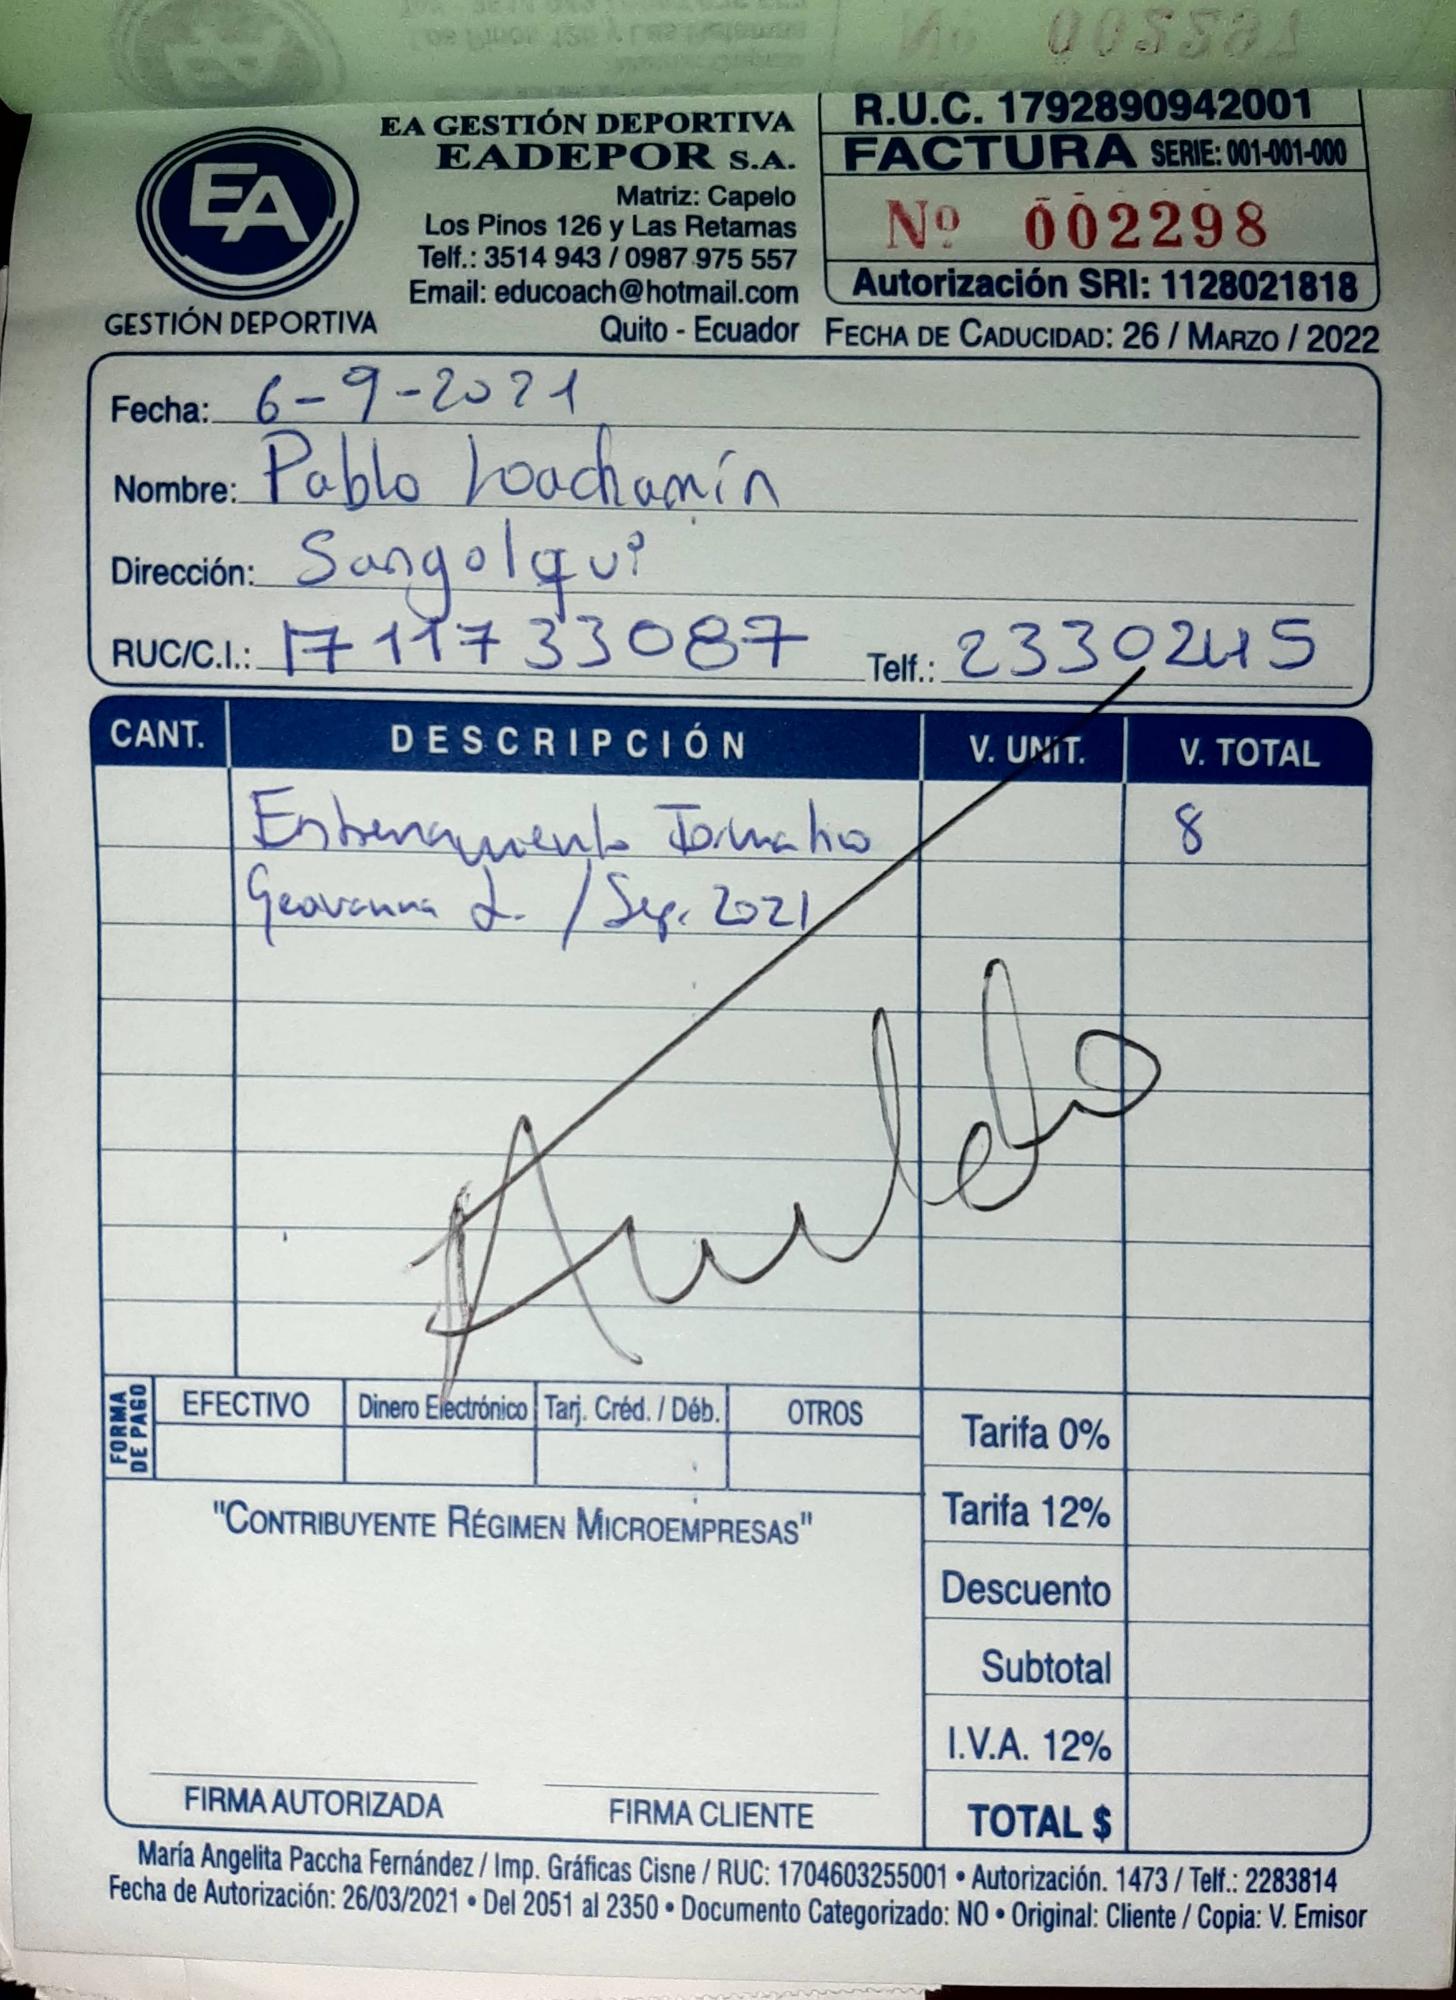 EA GESTIÓN DEPORTIVA
EADEPOR S.A.
Matriz: Capelo
Los Pinos 126 y Las Retamas
Telf.: 3514 943 / 0987 975 557
Email: educoach@hotmail.com
Quito - Ecuador
EA
GESTIÓN DEPORTIVA
R.U.C. 1792890942001
FACTURA SERIE: 001-001-000
Nº 002298
Autorización SRI: 1128021818
FECHA DE CADUCIDAD: 26 / MARZO / 2022
Fecha: 6-9-2021
Nombre: Pablo Loachamín
Dirección: Sangolqui
RUC/C.I.: 1711733087 Telf.: 2330245
CANT. DESCRIPCIÓN V. UNIT. V. TOTAL
Entrenamiento Formativo 8
Geovanna L. / Sep. 2021
Anulado
FORMA DE PAGO
EFECTIVO Dinero Electrónico Tarj. Créd. / Déb. OTROS
"CONTRIBUYENTE RÉGIMEN MICROEMPRESAS"
Tarifa 0%
Tarifa 12%
Descuento
Subtotal
I.V.A. 12%
TOTAL $
FIRMA AUTORIZADA FIRMA CLIENTE
María Angelita Paccha Fernández / Imp. Gráficas Cisne / RUC: 1704603255001 • Autorización. 1473 / Telf.: 2283814
Fecha de Autorización: 26/03/2021 • Del 2051 al 2350 • Documento Categorizado: NO • Original: Cliente / Copia: V. Emisor